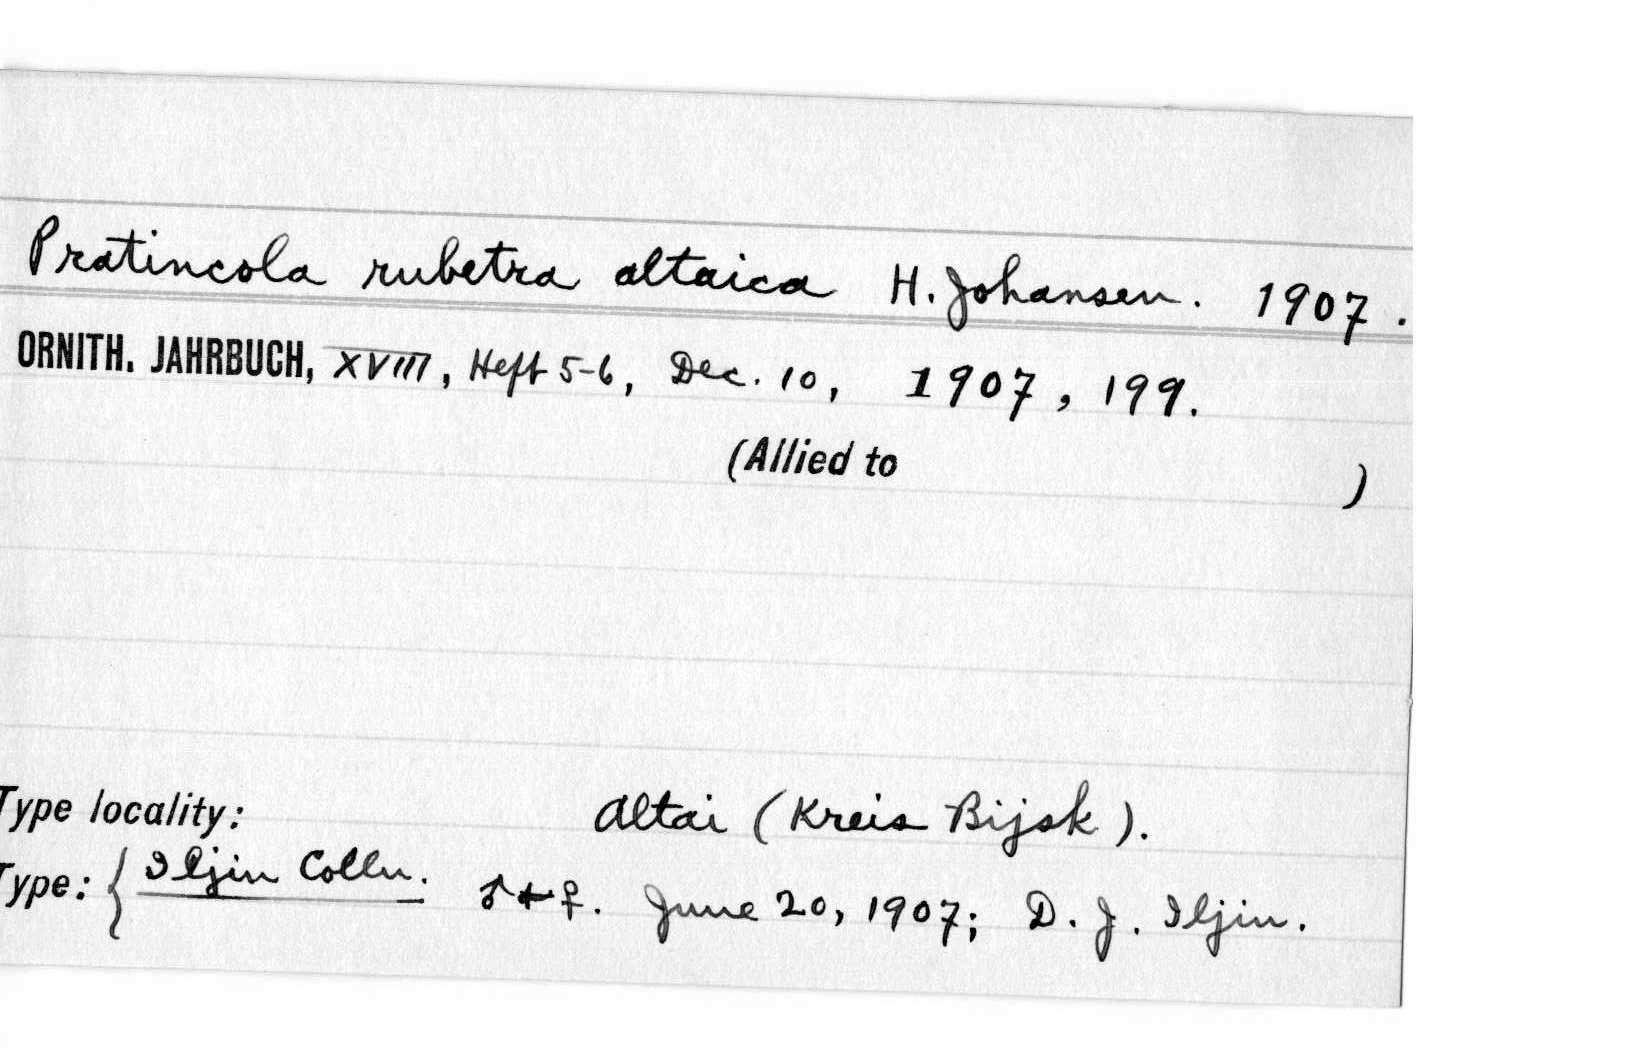 Pratincola rubetra altaica H. Johansen. 1907.
ORNITH. JAHRBUCH, XVIII, Heft 5-6, Dec. 10, 1907, 199.
(Allied to )
Type locality: Altai (Kreis Bijsk).
Type: { Iljin Colln. ♂ + ♀. June 20, 1907; D. J. Iljin.